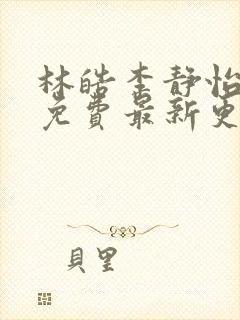 林皓李静怡
免费最新更
貝里